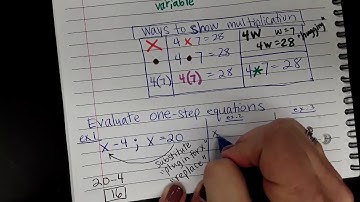 variable
Ways to show multiplication
× 4 × 7 = 28
• 4 • 7 = 28
4(7) 4(7) = 28
4w w=7 "hugging"
4w = 28
4*7=28
Evaluate one-step equations
ex.1
x-4 ; x=20
substitute
"plug in for x"
"replace"
20-4
16
ex.2
x
ex.3